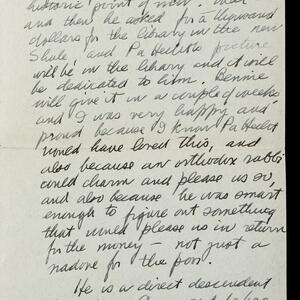 historic point of view. 
and then he asked for a thousand
dollars for the library in the new
Shule, and Pa Hecht's picture
will be in the library and it will
be dedicated to him. Bennie
will give it in a couple of weeks
and I was very happy and
proud because I know Pa Hecht
would have loved this, and
also because an orthodox rabbi
could charm and please us so,
and also because he was smart
enough to figure out something
that would please us in return
for the money — not just a
nadove for the poor.
He is a direct descendent